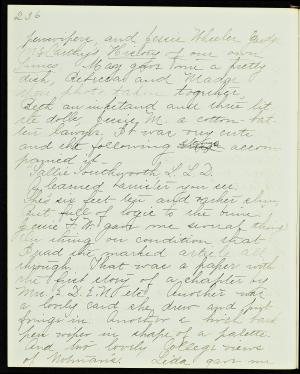 236
penwiper and Jessie Wheeler Madge
McCarthy's History of our own
Times. May gave me a pretty
dish, Rebecca and Madge
their photo taken together,
Beth an inkstand and three lit
tle dolls, Jessie M. a cotton-bat
ten lawyer. It was very cute
and the following accom
panied it—
Sallie Southworth L. L. D.
A learned barrister you see,
He's six feet ten and rather slim,
But full of logic to the brim.
Jessie F. W. gave me several
things on condition that
I read the marked article all
through. That was a paper with
the first story of a chapter by
Mrs. A. D. E. W. etc. Another was
a lovely card she drew and first
in. Another a
pen wiper in shape of a palette.
And two lovely College views
of Norman's. Leda gave me